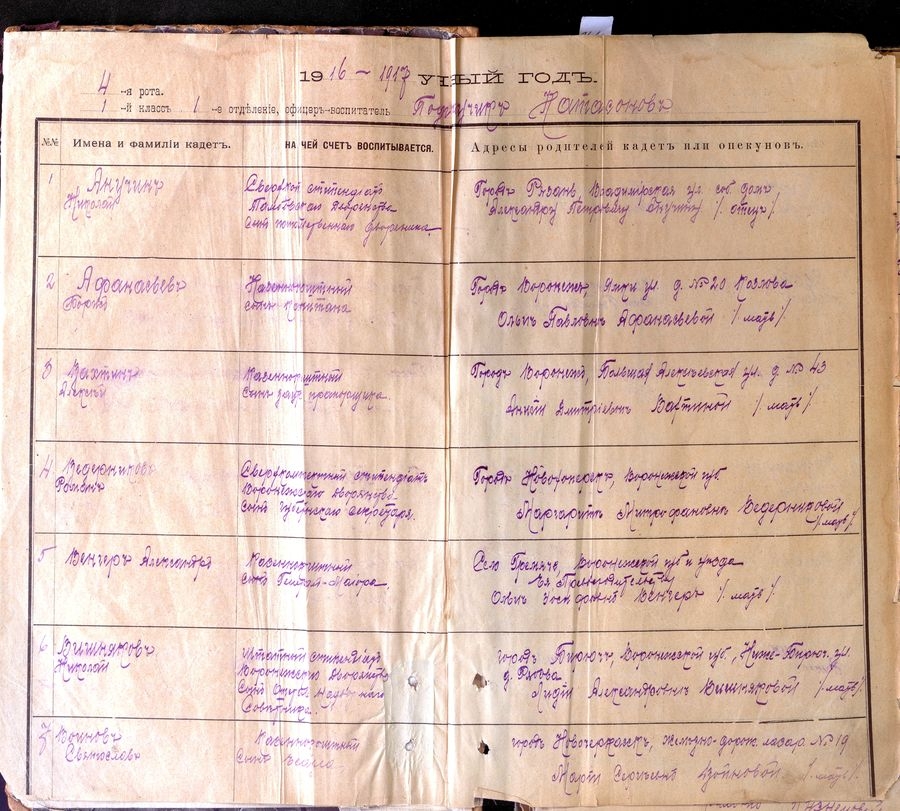 1916-1917 У НЫЙ ГОДЪ.
4 -я рота.
1 -й классъ 1 -е отдѣленіе, офицеръ-воспитатель Подпоручикъ
№№ Имена и фамиліи кадетъ. НА ЧЕЙ СЧЕТЪ ВОСПИТЫВАЕТСЯ. Адресы родителей кадетъ или опекуновъ.
1 Анучинъ
Николай
стипендіатъ
Тамбовскаго Дворянства
сынъ потомственнаго дворянина.
Городъ Рязань, Владимірская ул. соб. домъ
Александру Петровичу Анучину /. отецъ /.
2 Афанасьевъ
Георгій
Казеннокоштный
сынъ капитана
Городъ Воронежъ, ул. д. № 20 Козлова
Ольгѣ Павловнѣ Афанасьевой /. мать /.
3 Вахтинъ
Алексѣй
Казеннокоштный
сынъ прапорщика.
Городъ Воронежъ, Большая Алексѣевская ул. д. № 43
Дмитріевнѣ Вахтиной /. мать /.
4 Ведерниковъ
Романъ
Сверхкомплектный стипендіатъ
Воронежскаго Дворянства
сынъ Губернскаго Секретаря.
Городъ Новохоперскъ, Воронежской губ.
Маргаритѣ Митрофановнѣ Ведерниковой
/. мать /.
5 Венгеръ Александръ
Казеннокоштный
сынъ Генералъ-Маіора.
Село Гремячье, Воронежской губ. и уѣзда
Ея Превосходительству
Ольгѣ Венгеръ /. мать /.
6 Вишняковъ
Николай
Штатный стипендіатъ
Воронежскаго Дворянства
Сынъ
Совѣтника.
городъ Бирючъ, Воронежской губ., Ниже-Бирюч. ул.
д.
Лидіи Александровнѣ Вишняковой /. мать /.
7 Воиновъ
Святославъ
Казеннокоштный
Сынъ
городъ Новочеркасскъ, лазар. № 19
Маріи Сергѣевнѣ Воиновой /. мать /.